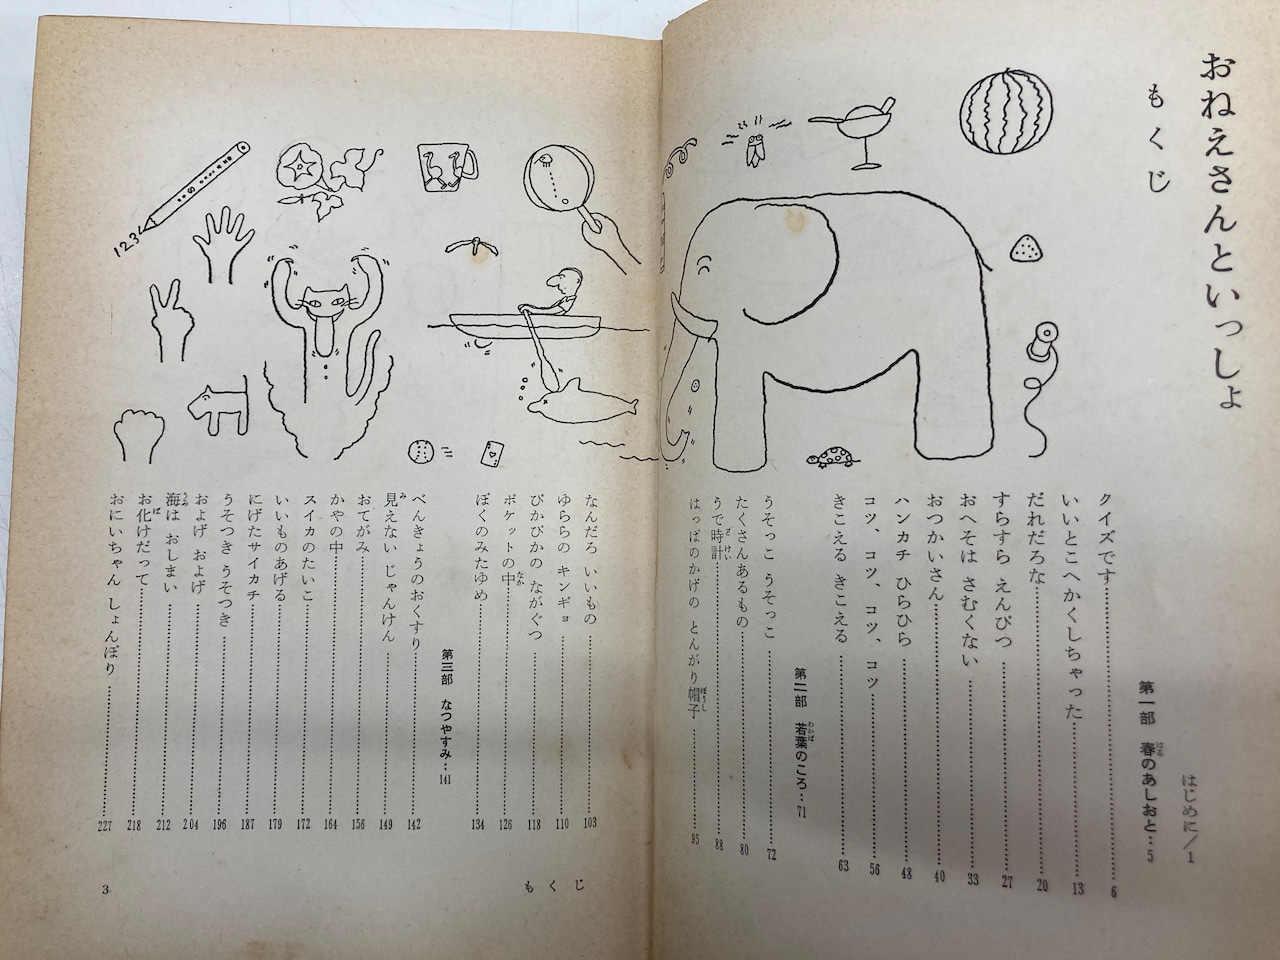 おねえさんといっしょ
もくじ
はじめに／1
第一部　春のあしおと…5
クイズです……6
いいとこへかくしちゃった……13
だれだろな……20
すらすら えんぴつ……27
おへそは さむくない……33
おつかいさん……40
ハンカチ ひらひら……48
コツ、コツ、コツ、コツ……56
きこえる きこえる……63
第二部　若葉のころ…71
うそっこ うそっこ……72
たくさんあるもの……80
うで時計……88
はっぱのかげの とんがり帽子……95
なんだろ いいもの……103
ゆららの キンギョ……110
ぴかぴかの ながぐつ……118
ポケットの中……126
ぼくのみたゆめ……134
第三部　なつやすみ…141
べんきょうのおくすり……142
見えない じゃんけん……149
おてがみ……156
かやの中……164
スイカのたいこ……172
いいものあげる……179
にげたサイカチ……187
うそつき うそつき……196
およげ およげ……204
海は おしまい……212
お化けだって……218
おにいちゃん しょんぼり……227
もくじ
3
123